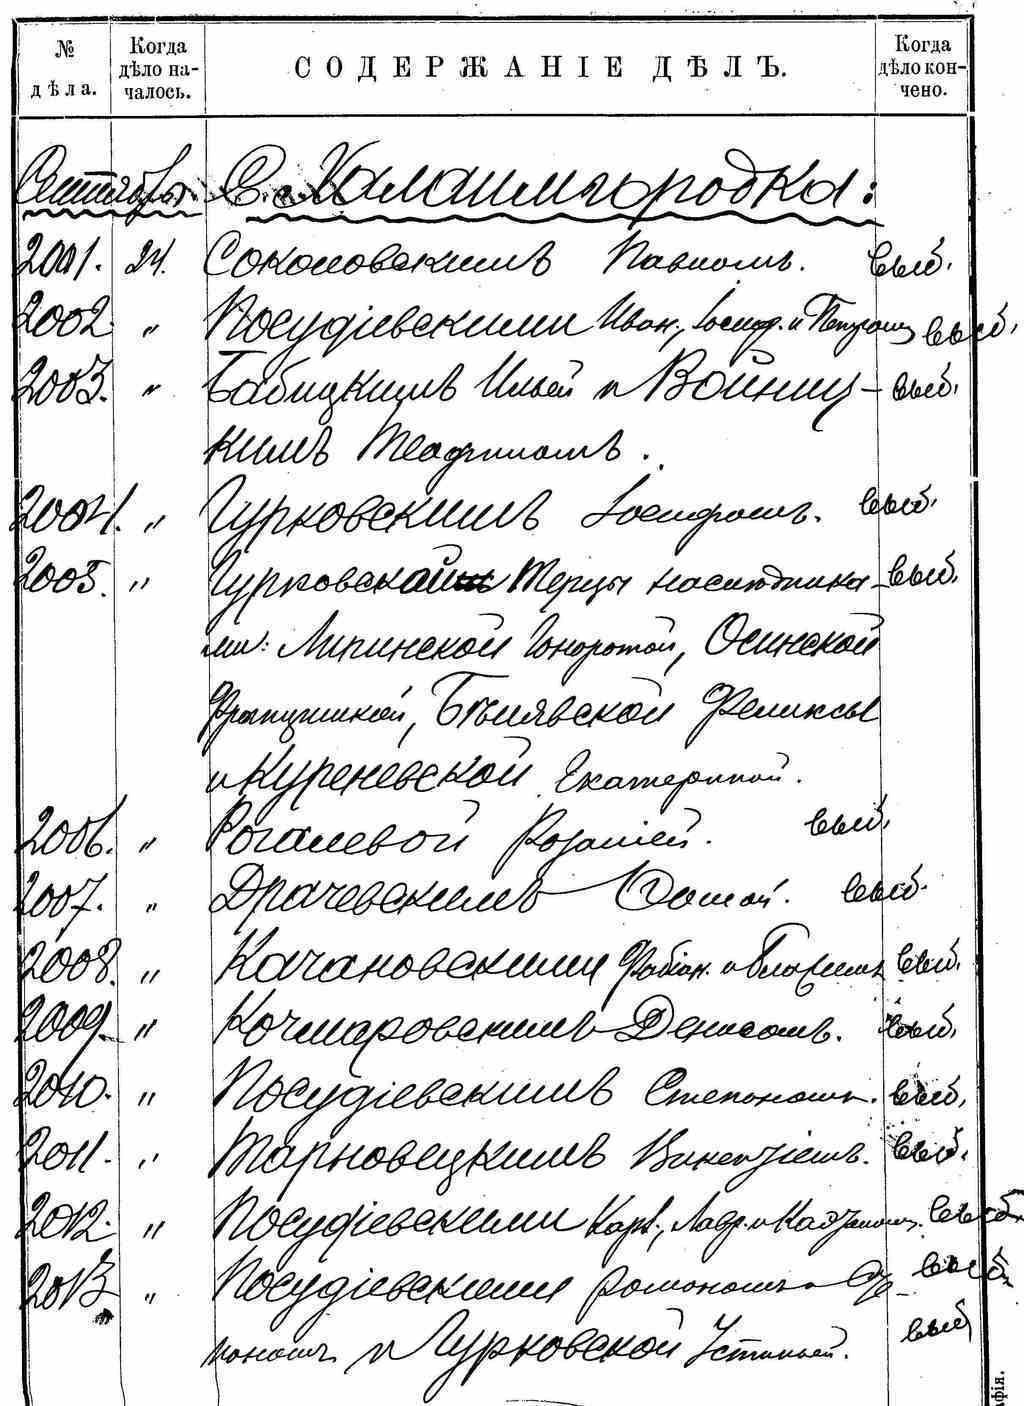 № дѣла. Когда дѣло началось. СОДЕРЖАНІЕ ДѢЛЪ. Когда дѣло кончено.
С.
2001. 24. Соколовскимъ Павломъ. выб.
2002 " Посудіевскими Иван., Іосиф. и выб.
2003. " Бабицкимъ Ильей и Войниц- выб.
кимъ Теофиломъ.
2004. " Гурковскимъ Іосифомъ. выб.
2005. " Гурковской Терезы наслѣдника- выб.
ми: Липинской Гоноратой, Осинской
Францишкой, Бѣлявской Феликсы
и Куреневской Екатериной.
2006. " Рогалевой Розаліей. выб.
2007. " Драчевскимъ Фомой. выб.
2008. " Качановскими Фабіан. и выб.
2009. " Кочмаровскимъ Денисомъ. выб.
2010. " Посудіевскимъ Степаномъ. выб.
2011. " Тарновецкимъ Викентіемъ. выб.
2012. " Посудіевскими Карл., Лавр. и выб.
2013 " Посудіевскими Романомъ и выб.
и Гурковской Устиньей. выб.
афія.